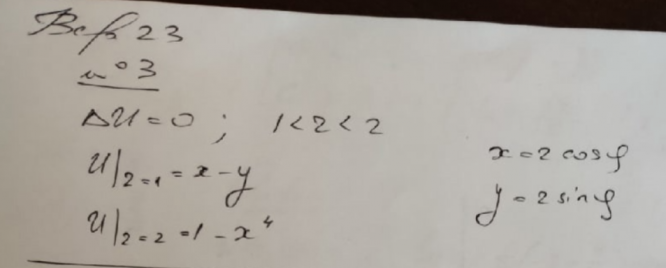 Вар 23
№ 3
ΔU = 0 ; 1 < r < 2
U|r=1 = x - y
U|r=2 = 1 - x⁴
x = r cosφ
y = r sinφ